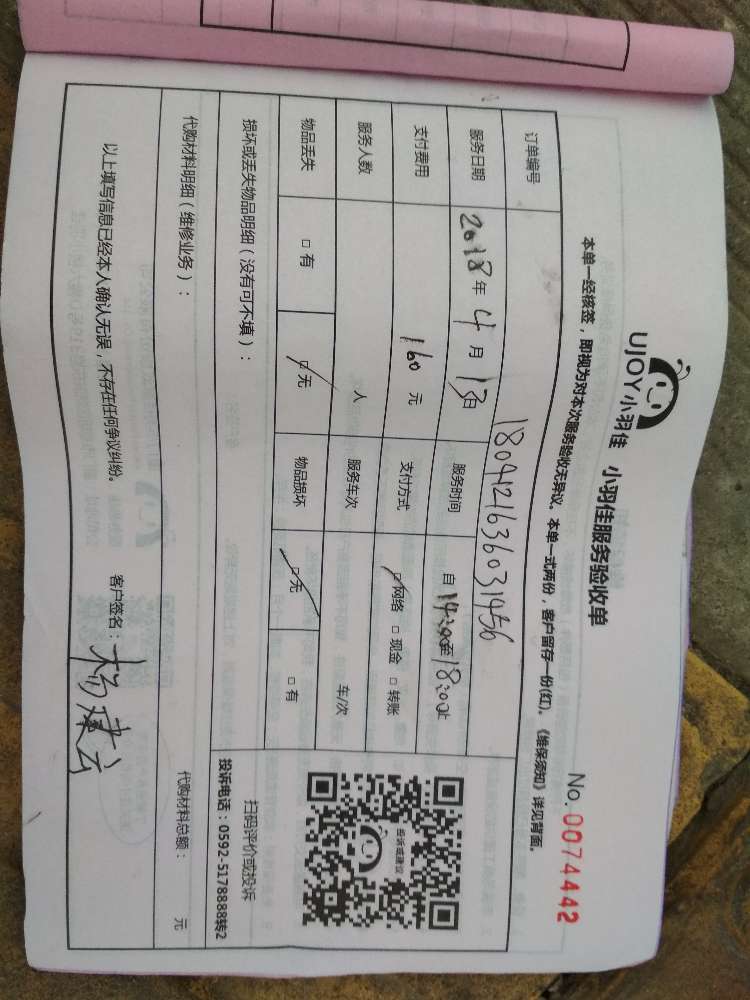 UJOY小羽佳 小羽佳服务验收单
No. 0074442
本单一经核签，即视为对本次服务验收无异议。本单一式两份，客户留存一份(红)。《维保须知》详见背面。
订单编号 1804121636031456
服务日期 2018年4月13日 服务时间 自14:00至18:00止
支付费用 160元 支付方式 □网络 □现金 □转账
服务人数 人 服务车次 车/次
物品丢失 □有 □无 物品损坏 □无 □有
投诉或建议
扫码评价或投诉
投诉电话：0592-5178888转2
损坏或丢失物品明细（没有可不填）：
代购材料明细（维修业务）： 代购材料总额： 元
以上填写信息已经本人确认无误，不存在任何争议纠纷。
客户签名：杨建云